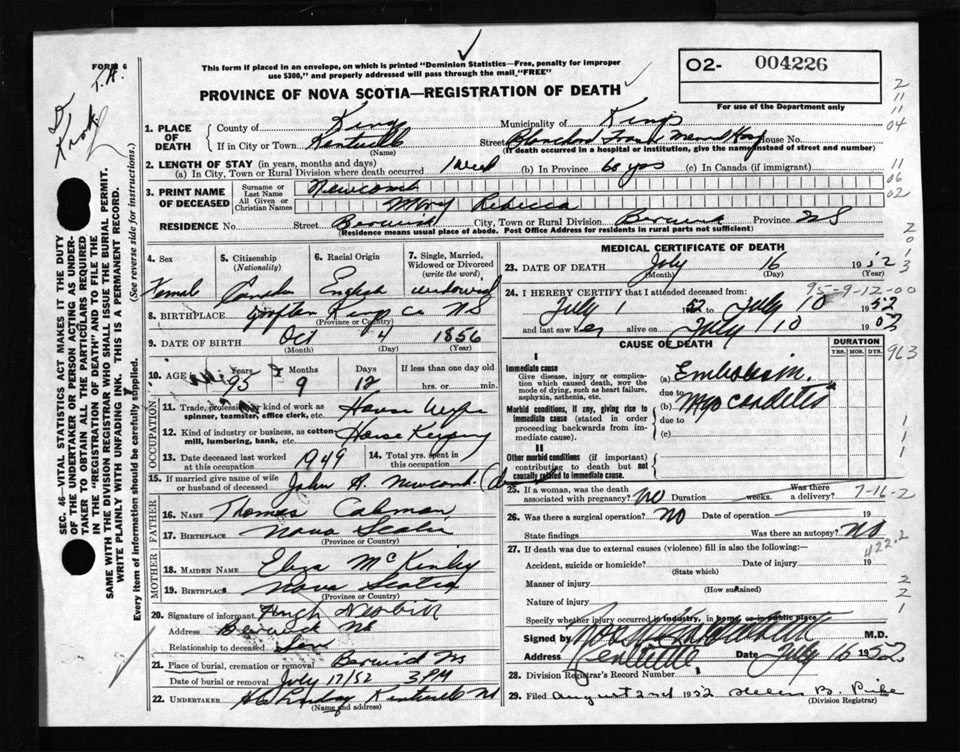 FORM 6
T.H.
This form if placed in an envelope, on which is printed "Dominion Statistics—Free, penalty for improper
use $300," and properly addressed will pass through the mail "FREE"
PROVINCE OF NOVA SCOTIA—REGISTRATION OF DEATH
O2- 004226
For use of the Department only
SEC. 46—VITAL STATISTICS ACT MAKES IT THE DUTY
OF THE UNDERTAKER OR PERSON ACTING AS UNDER-
TAKER TO OBTAIN ALL THE PARTICULARS REQUIRED
IN THE "REGISTRATION OF DEATH" AND TO FILE THE
SAME WITH THE DIVISION REGISTRAR WHO SHALL ISSUE THE BURIAL PERMIT.
WRITE PLAINLY WITH UNFADING INK. THIS IS A PERMANENT RECORD.
(See reverse side for instructions.)
Every item of information should be carefully supplied.
1. PLACE OF DEATH
County of Kings Municipality of Kings
If in City or Town Kentville Street Blanchard Fraser Memorial Hosp House No.
(Name) (If death occurred in a hospital or institution, give the name instead of street and number)
2. LENGTH OF STAY (in years, months and days)
(a) In City, Town or Rural Division where death occurred 1 Week (b) In Province 60 yrs (c) In Canada (if immigrant)
3. PRINT NAME OF DECEASED
Surname or Last Name Newcomb
All Given or Christian Names Mary Rebecca
RESIDENCE No. Street Berwick City, Town or Rural Division Berwick Province NS
(Residence means usual place of abode. Post Office Address for residents in rural parts not sufficient)
4. Sex 5. Citizenship (Nationality) 6. Racial Origin 7. Single, Married, Widowed or Divorced (write the word)
Female English widowed
8. BIRTHPLACE Grafton Kings Co NS
(Province or Country)
9. DATE OF BIRTH Oct 4 1856
(Month) (Day) (Year)
10. AGE Years Months Days If less than one day old
95 9 12 hrs. or min.
OCCUPATION
11. Trade, profession or kind of work as spinner, teamster, office clerk, etc. House Wife
12. Kind of industry or business, as cotton mill, lumbering, bank, etc. House Keeping
13. Date deceased last worked at this occupation 1949 14. Total yrs. spent in this occupation
15. If married give name of wife or husband of deceased John H. Newcomb
FATHER
16. NAME Thomas
17. BIRTHPLACE Nova Scotia
(Province or Country)
MOTHER
18. MAIDEN NAME Eliza McKinley
19. BIRTHPLACE Nova Scotia
(Province or Country)
20. Signature of informant
Address Berwick NS
Relationship to deceased Son
21. Place of burial, cremation or removal Berwick NS
Date of burial or removal July 17/52 3 PM
22. UNDERTAKER Lindsay Kentville NS
(Name and address)
MEDICAL CERTIFICATE OF DEATH
23. DATE OF DEATH July 16 1952
(Month) (Day) (Year)
95-9-12-00
24. I HEREBY CERTIFY that I attended deceased from:
July 1 52 to July 10 1952
and last saw her alive on July 10 1952
CAUSE OF DEATH DURATION
YRS. MOS. DYS.
963
I
Immediate cause
Give disease, injury or complication which caused death, not the mode of dying, such as heart failure, asphyxia, asthenia, etc.
(a) Embolism.
due to
Morbid conditions, if any, giving rise to immediate cause (stated in order proceeding backwards from immediate cause).
(b) Myocarditis
due to
(c)
II
Other morbid conditions (if important) contributing to death but not causally related to immediate cause.
25. If a woman, was the death associated with pregnancy? NO Duration weeks. Was there a delivery? 7-16-2
26. Was there a surgical operation? NO Date of operation 19
State findings Was there an autopsy? NO
1122.2
27. If death was due to external causes (violence) fill in also the following:—
Accident, suicide or homicide? Date of injury 19
(State which)
Manner of injury
(How sustained)
Nature of injury
Specify whether injury occurred in industry, in home, or in public place
Signed by M.D.
Address Kentville Date July 16 1952
28. Division Registrar's Record Number
29. Filed August 2nd 1952 Helen B.
(Division Registrar)